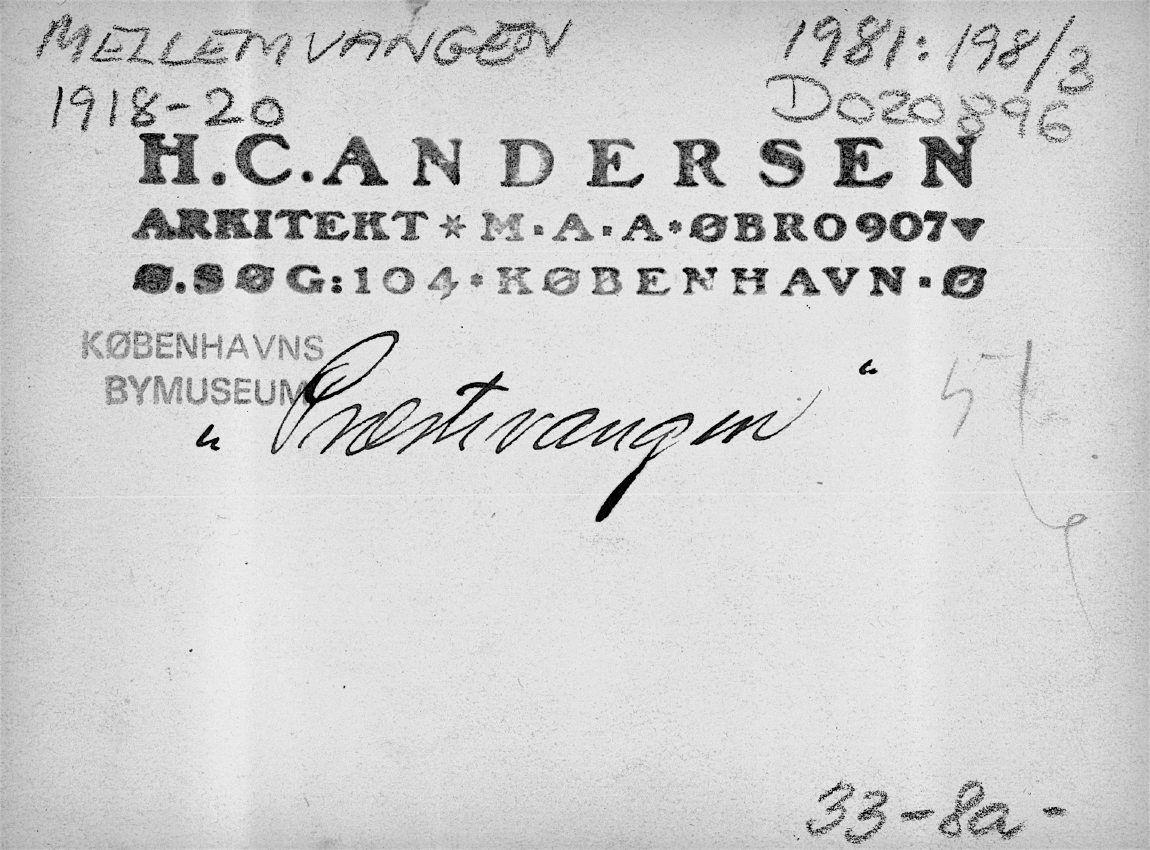 MELLEMVANGEN
1918-20
1981:198/3
D020896
H.C.ANDERSEN
ARKITEKT * M·A·A * ØBRO 907
Ø.SØG:104 * KØBENHAVN·Ø
KØBENHAVNS
BYMUSEUM
„ Præstevangen “
33-8a-